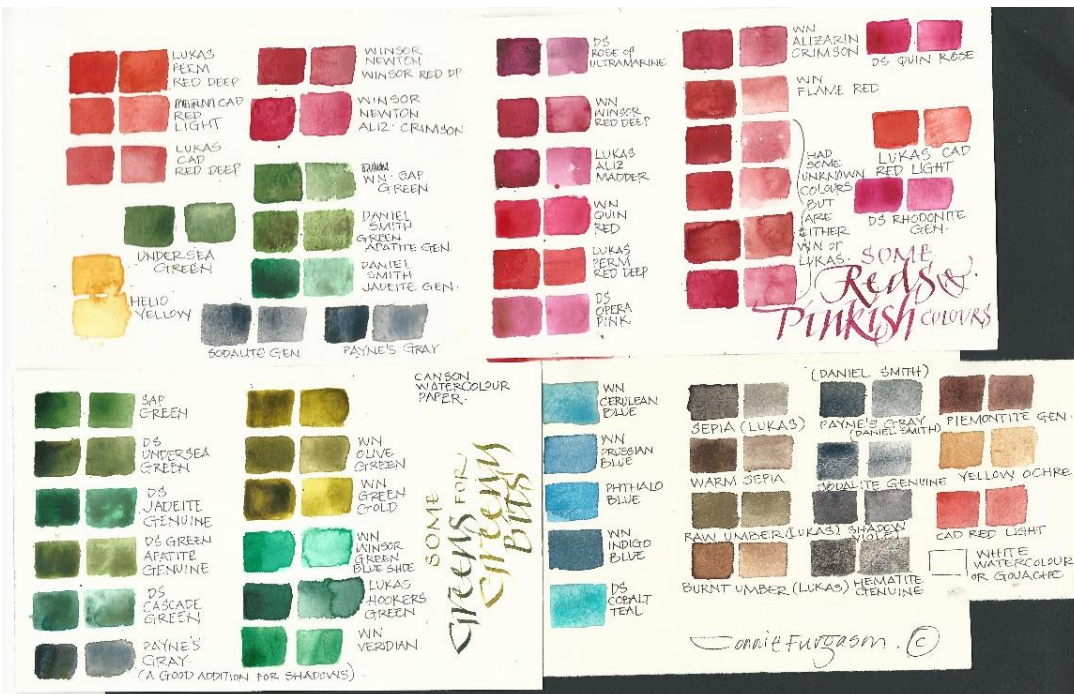 LUKAS
PERM
RED DEEP
CAD
RED
LIGHT
LUKAS
CAD
RED DEEP
WINSOR
NEWTON
WINSOR RED DP
WINSOR
NEWTON
ALIZ. CRIMSON
UNDERSEA
GREEN
WN SAP
GREEN
DANIEL
SMITH
GREEN
APATITE GEN.
DANIEL
SMITH
JADEITE GEN.
HELIO
YELLOW
SODALITE GEN
PAYNE'S GRAY
DS
ROSE OF
ULTRAMARINE
WN
WINSOR
RED DEEP
LUKAS
ALIZ
MADDER
WN
QUIN
RED
LUKAS
PERM
RED DEEP
DS
OPERA
PINK
WN
ALIZARIN
CRIMSON
WN
FLAME RED
HAD
SOME
UNKNOWN
COLOURS
BUT
ARE
EITHER
WN or
LUKAS.
DS QUIN ROSE
LUKAS CAD
RED LIGHT
DS RHODONITE
GEN.
SOME
Reds &
Pinkish COLOURS
SAP
GREEN
DS
UNDERSEA
GREEN
DS
JADEITE
GENUINE
DS GREEN
APATITE
GENUINE
DS
CASCADE
GREEN
PAYNE'S
GRAY
(A GOOD ADDITION FOR SHADOWS).
CANSON
WATERCOLOUR
PAPER.
WN
OLIVE
GREEN
WN
GREEN
GOLD
WN
WINSOR
GREEN
BLUE SHDE
LUKAS
HOOKERS
GREEN
WN
VERIDIAN
SOME
Greens FOR
Greeny
Bits
WN
CERULEAN
BLUE
WN
PRUSSIAN
BLUE
PHTHALO
BLUE
WN
INDIGO
BLUE
DS
COBALT
TEAL
SEPIA (LUKAS)
WARM SEPIA
RAW UMBER (LUKAS)
BURNT UMBER (LUKAS)
(DANIEL SMITH)
PAYNE'S GRAY
(DANIEL SMITH)
SODALITE GENUINE
SHADOW
VIOLET
HEMATITE
GENUINE
PIEMONTITE GEN.
YELLOW OCHRE.
CAD RED LIGHT
WHITE
WATERCOLOUR
OR GOUACHE
©